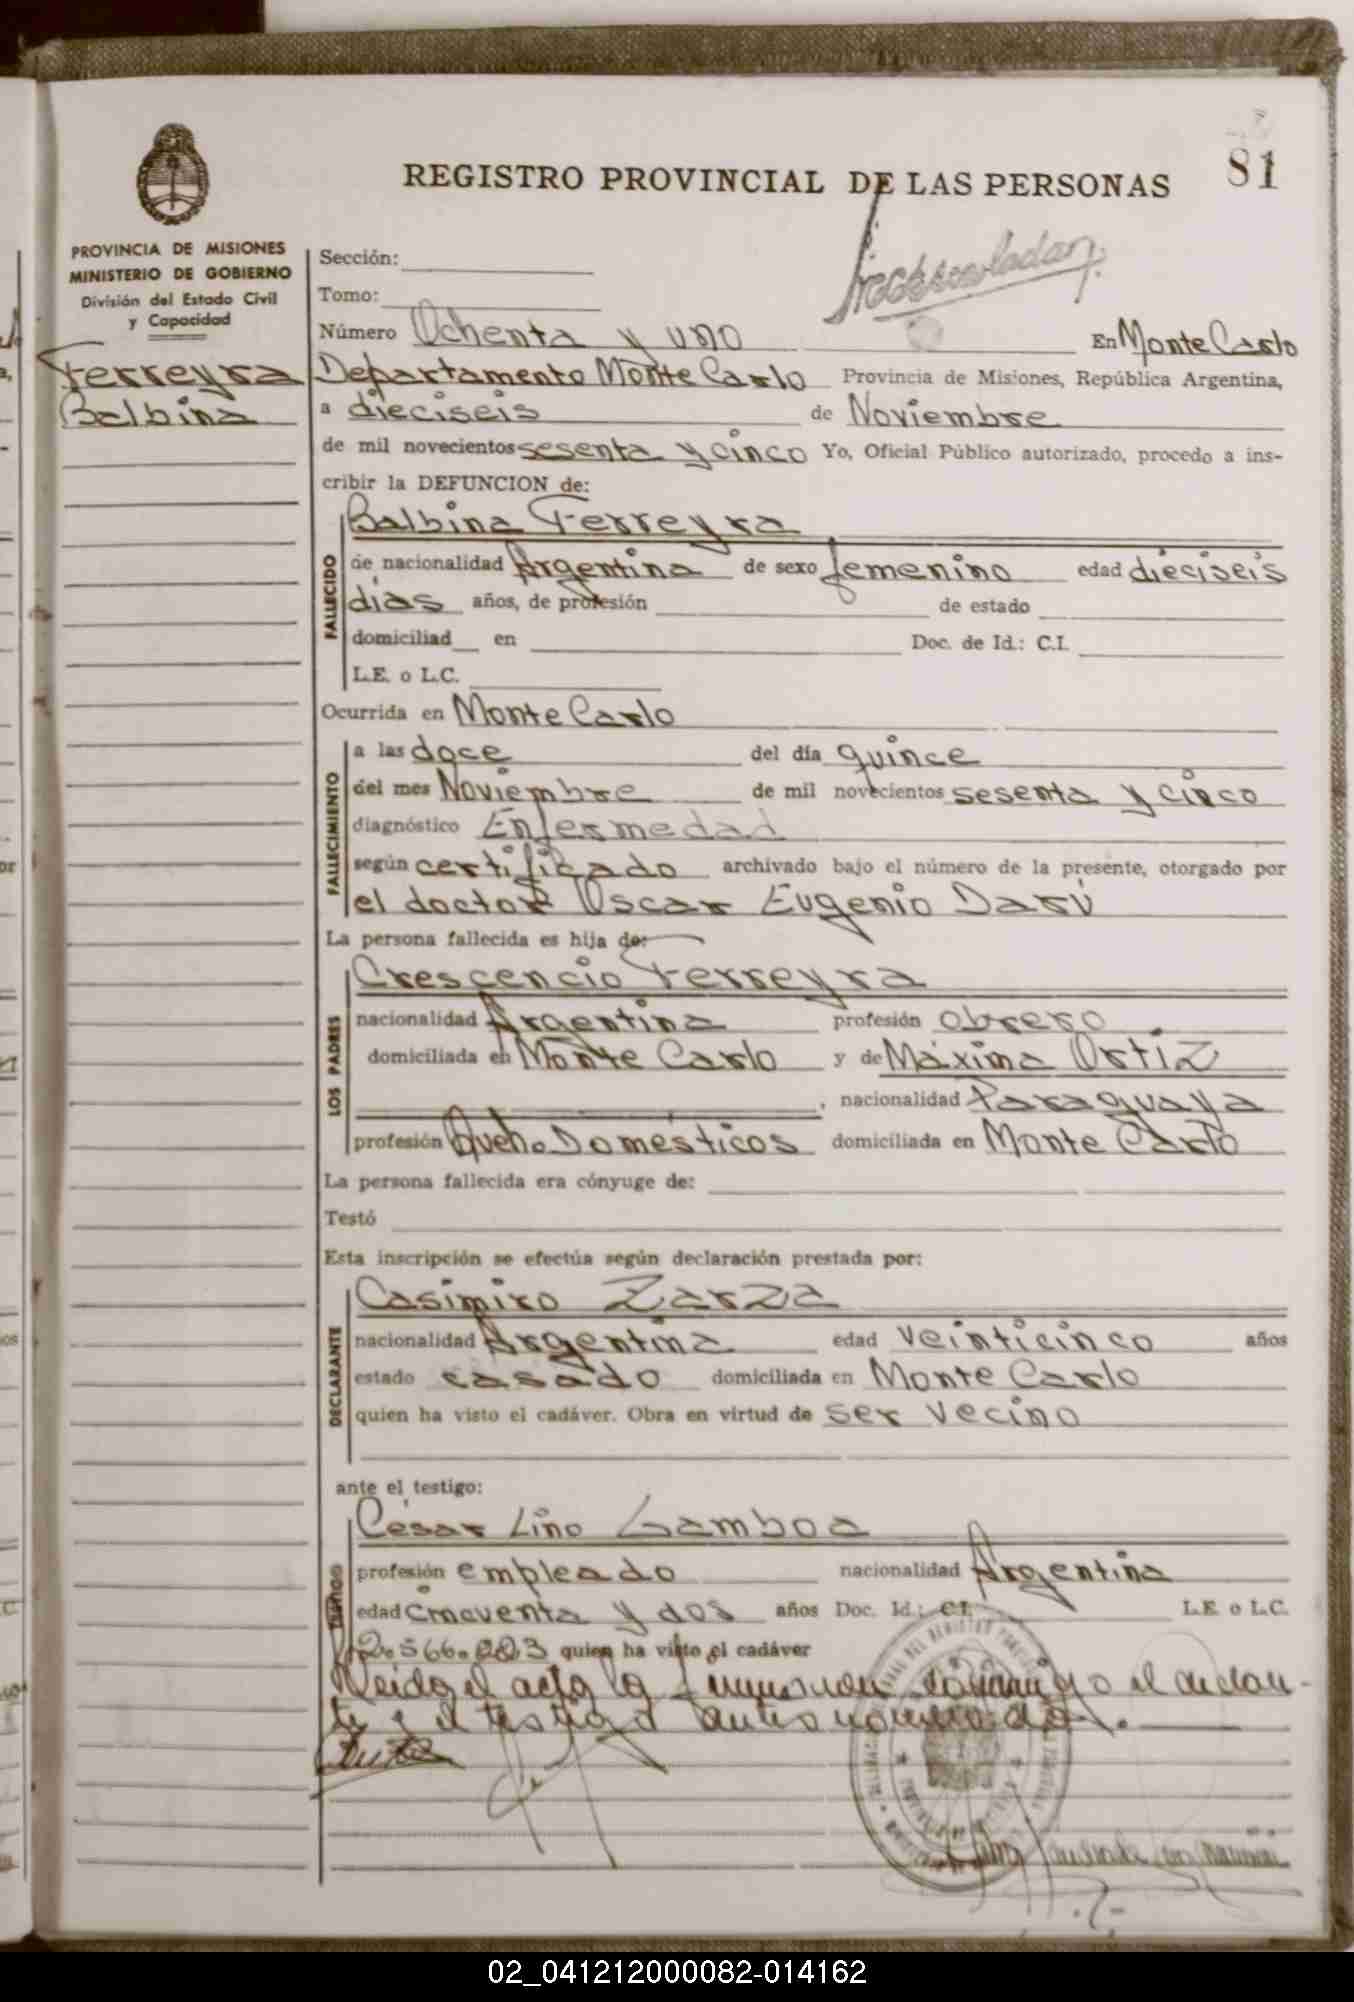 81
REGISTRO PROVINCIAL DE LAS PERSONAS
PROVINCIA DE MISIONES
MINISTERIO DE GOBIERNO
División del Estado Civil
y Capacidad
Ferreyra
Balbina
Sección:
Tomo:
Número Ochenta y uno En Monte Carlo
Departamento Monte Carlo Provincia de Misiones, República Argentina,
a dieciseis de Noviembre
de mil novecientos sesenta y cinco Yo, Oficial Público autorizado, procedo a ins-
cribir la DEFUNCION de:
FALLECIDO
Balbina Ferreyra
de nacionalidad Argentina de sexo femenino edad dieciseis
dias años, de profesión de estado
domiciliad en Doc. de Id.: C.I.
L.E. o L.C.
Ocurrida en Monte Carlo
FALLECIMIENTO
a las doce del día quince
del mes Noviembre de mil novecientos sesenta y cinco
diagnóstico Enfermedad
según certificado archivado bajo el número de la presente, otorgado por
el doctor Oscar Eugenio Darú
La persona fallecida es hija de:
LOS PADRES
Crescencio Ferreyra
nacionalidad Argentina profesión obrero
domiciliada en Monte Carlo y de Máxima Ortiz
, nacionalidad Paraguaya
profesión Queh. Domésticos domiciliada en Monte Carlo
La persona fallecida era cónyuge de:
Testó
Esta inscripción se efectúa según declaración prestada por:
DECLARANTE
Casimiro Zarza
nacionalidad Argentina edad veinticinco años
estado casado domiciliada en Monte Carlo
quien ha visto el cadáver. Obra en virtud de ser vecino
ante el testigo:
TESTIGO
César Lino Gamboa
profesión empleado nacionalidad Argentina
edad cincuenta y dos años Doc. Id.: C.I. L.E. o L.C.
quien ha visto el cadáver
Leida el acta la firman conmigo el declaran-
te y el testigo antes nombrado.
02_041212000082-014162